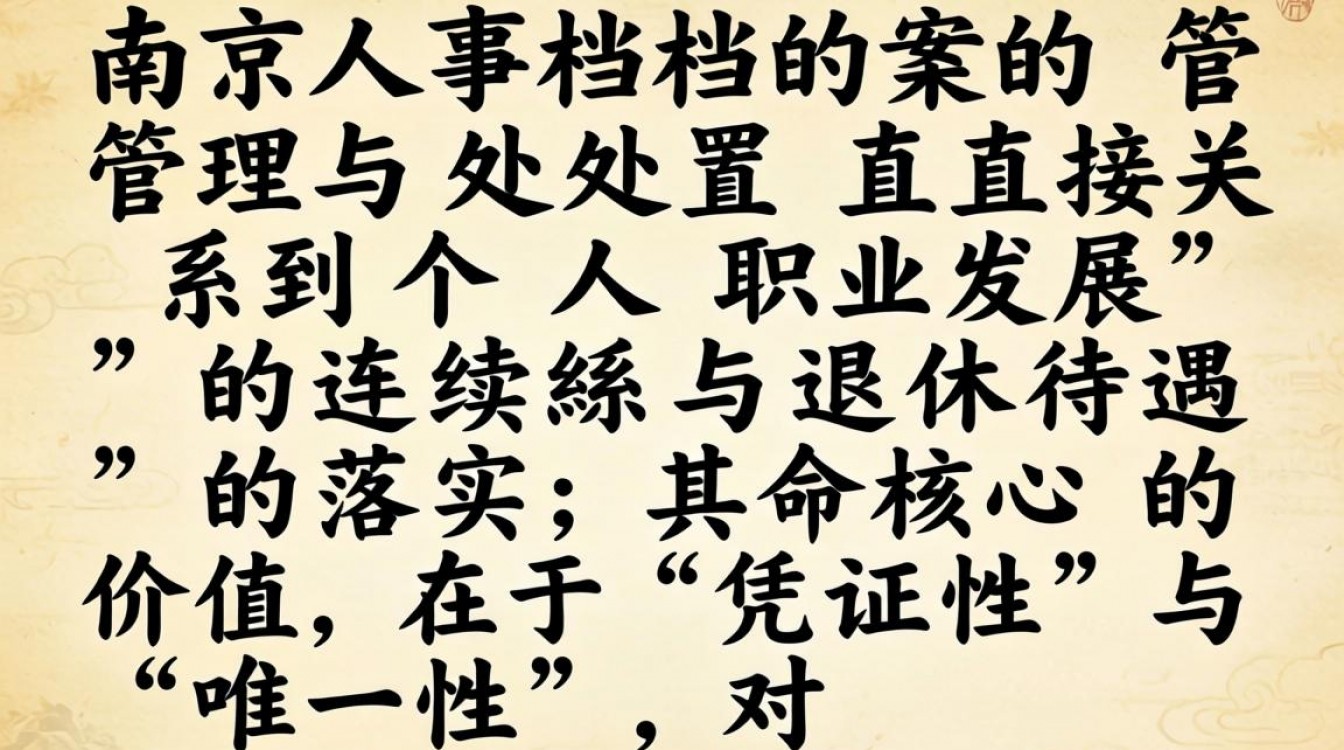 南京人事档档的案的 管
管理与 处处置 直直接关
系到个 人 职业发展”
” 的连续絲与退休待遇
” 的落实；其命核心 的
价值，在于“凭证性”与
“唯一性”，对